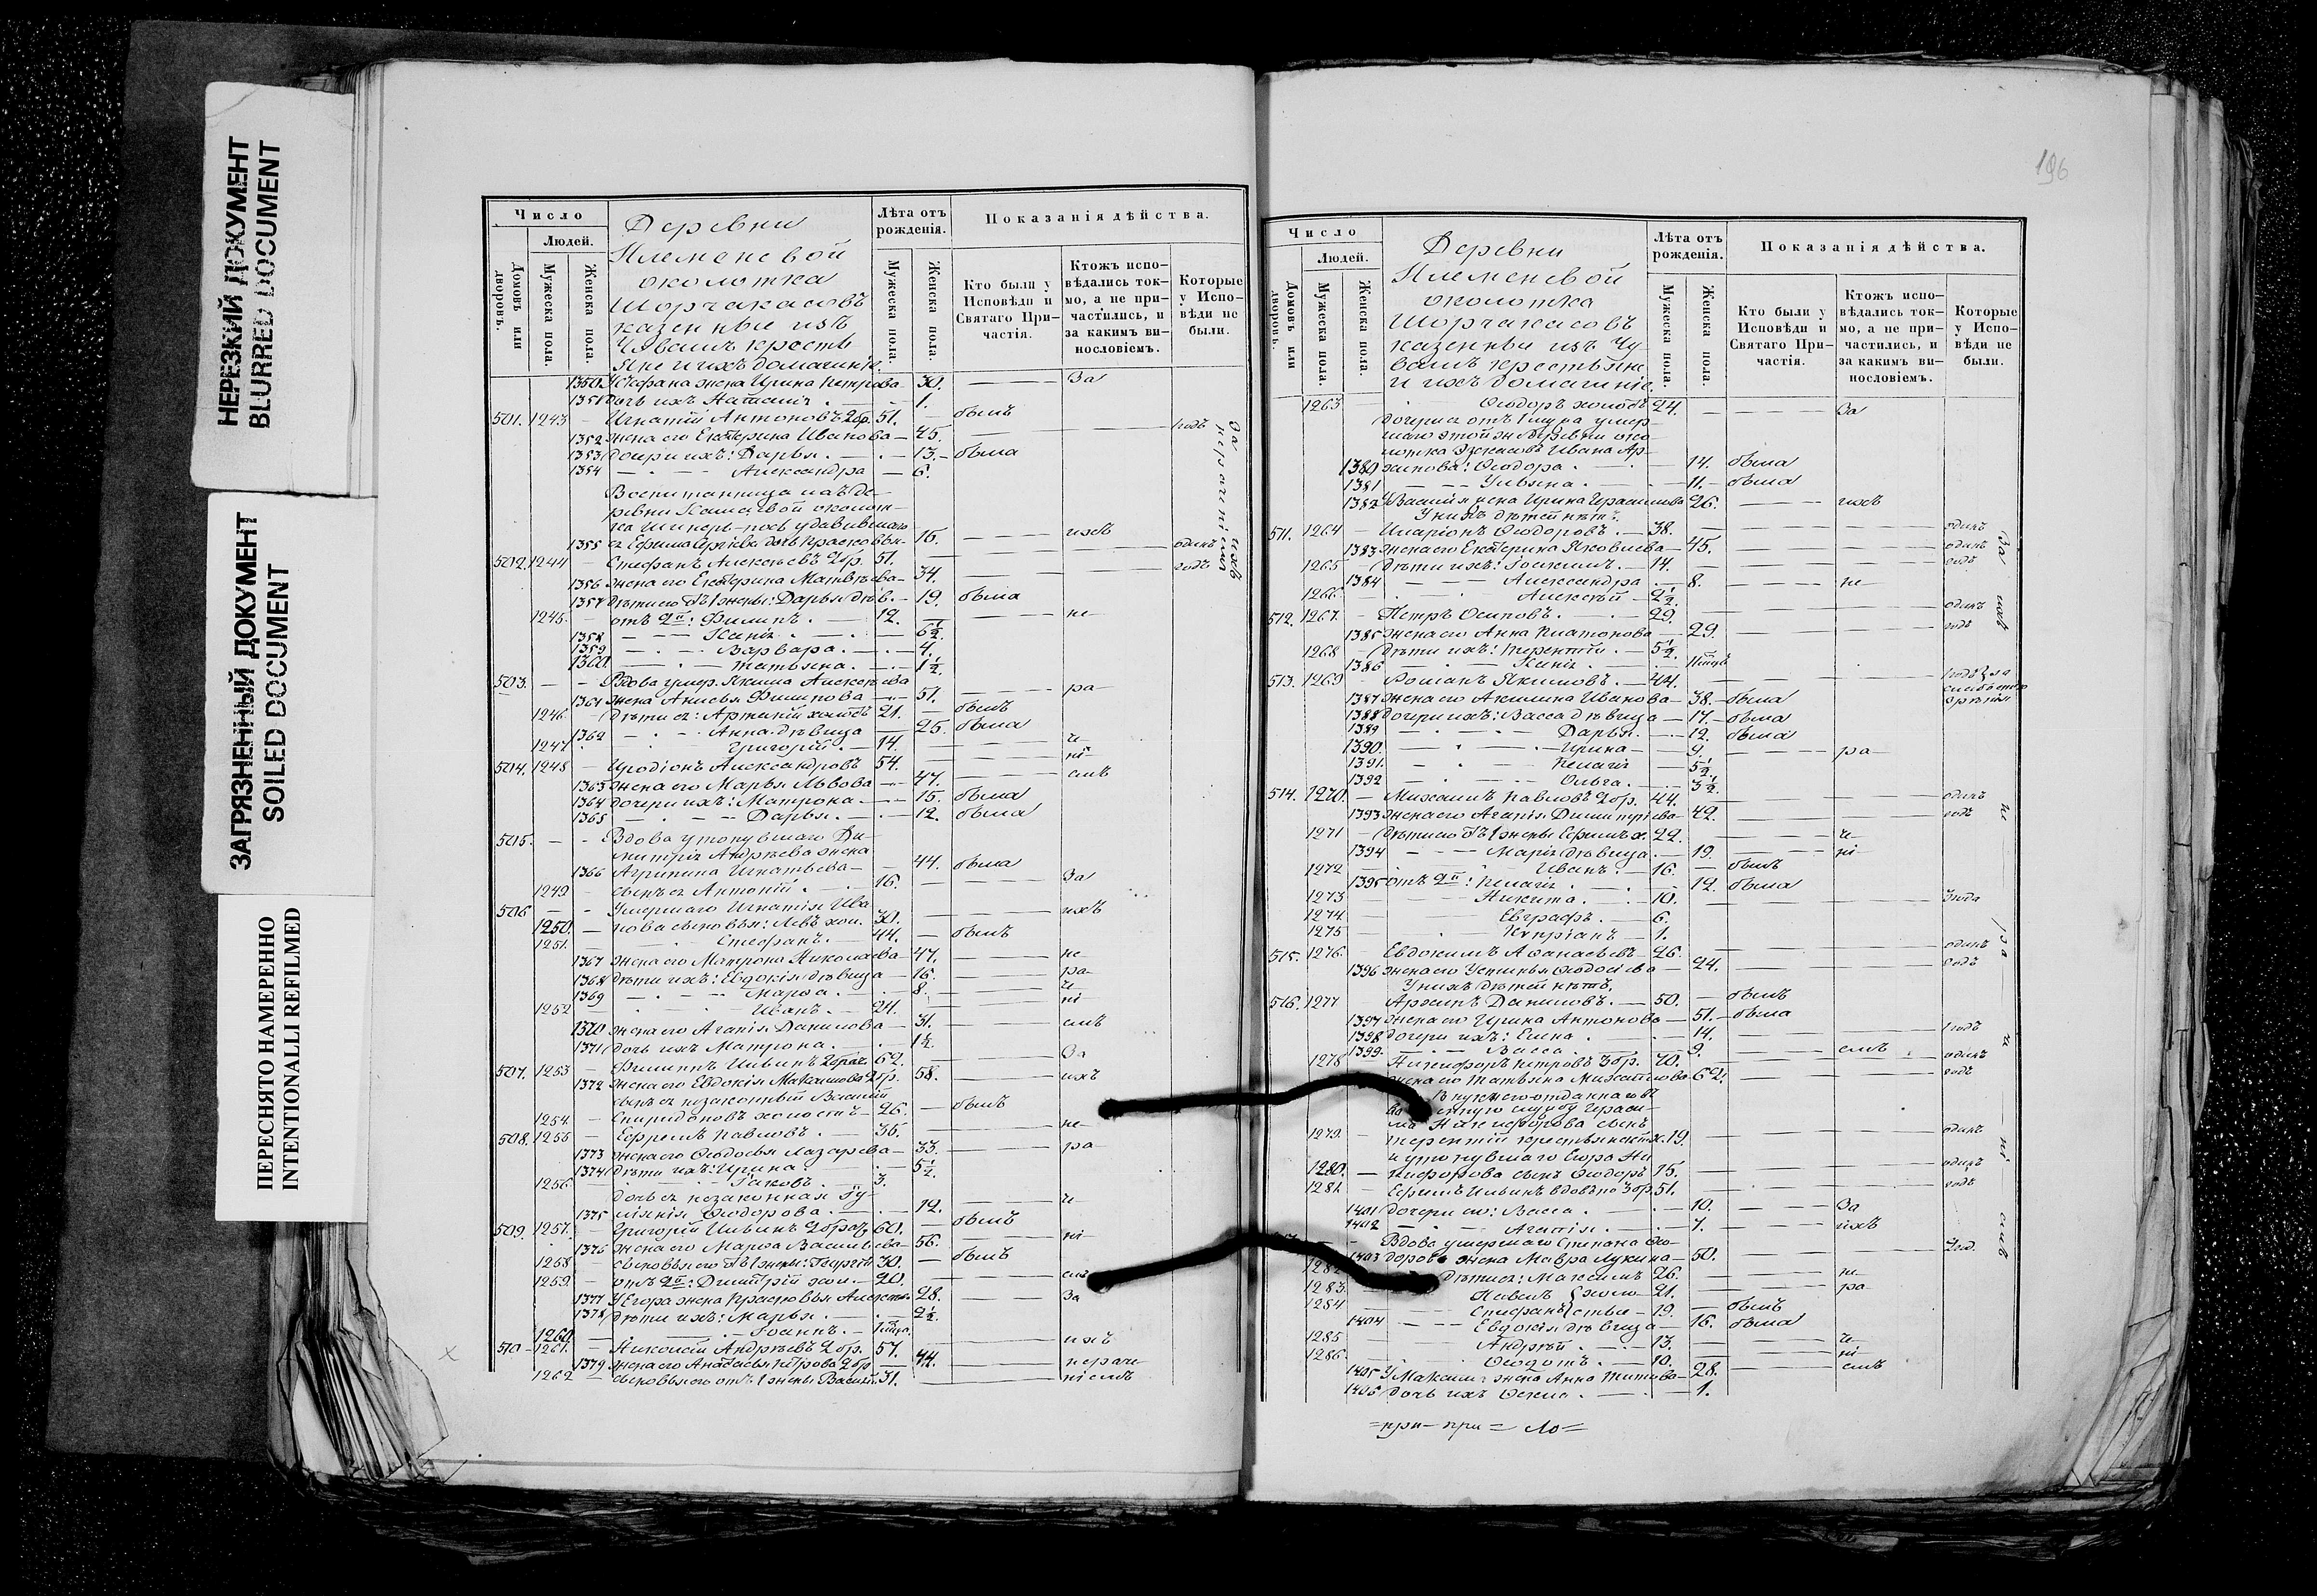 НЕРЕЗКИЙ ДОКУМЕНТ
BLURRED DOCUMENT
ЗАГРЯЗНЕННЫЙ ДОКУМЕНТ
SOILED DOCUMENT
ПЕРЕСНЯТО НАМЕРЕННО
INTENTIONALLI REFILMED
Число
Людей.
Домовъ или дворовъ.
Мужеска пола.
Женска пола.
Деревни
околотка
Шорчакасовъ
казенные изъ
Чувашъ кресть
яне и ихъ домашнія.
Лѣта отъ рожденія.
Мужеска пола.
Женска пола.
Показанія дѣйства.
Кто были у Исповѣди и Святаго Причастія.
Ктожъ исповѣдались токмо, а не причастились, и за какимъ винословіемъ.
Которые у Исповѣди не были.
1350 Стефана жена Ирина Петрова 30. За
1351 дочь ихъ Наталія 1.
501. 1243 Игнатій Антоновъ 2бр. 51. былъ
1352 жена его Екатерина Иванова 45. годъ
1353 дочери ихъ: Дарья 13. была
1354 Александра 6.
Воспитанница изъ де-
1355 15. ихъ
502. 1244 Стефанъ Алексѣевъ 2бр. 51. одинъ
1356 жена его Екатерина Матвѣева 34. годъ
1357 дѣти его съ 1 жены: Дарья дѣв. 19. была
1245 отъ 2й: Филипъ 12. не
1358 Ксенія 6½.
1359 Варвара 4.
1360 Татьяна 1½.
503. Вдова умер. Якима Алексѣева
1361 жена Анисья Филипова 51. ра
1246 дѣти ея: Артемій холостъ 21. былъ
1362 Анна дѣвица 25. была
1247 Григорій 14. че
504. 1248 Иродіонъ Александровъ 54. ні
1363 жена его Марья Львова 47. емъ
1364 дочери ихъ: Матрона 15. была
1365 Дарья 12. была
505. Вдова утонувшаго Ди-
митрія Андрѣева жена
1366 Агрипина Игнатьева 44. была
1249 сынъ ея Антоній 16. За
506. Умершаго Игнатія Ива
1250 нова сыновья: Левъ хол. 30. ихъ
1251 Стефанъ 44. былъ
1367 жена его Матрона Николаева 47. не
1368 дѣти ихъ: Евдокія дѣвица 16. ра
1369 Марѳа 8. че
1252 Иванъ 21. ні
1370 жена его Агапія Данилова 31. емъ
1371 дочь ихъ Матрона 1½.
507. 1253 Филиппъ Ильинъ 2брач. 62. За
1372 жена его Евдокія Максимова 2бр. 58. ихъ
сынъ ея незаконный Василій
1254 Спиридоновъ холостъ 26. былъ
508. 1255 Ефремъ Павловъ 35. не
1373 жена его Ѳеодосья Лазарева 33. ра
1374 дѣти ихъ: Ирина 5½.
1256 Іаковъ 3.
дочь ея незаконная Іу-
1375 ліянія Ѳеодорова 12. че
509. 1257 Григорій Ильинъ 2брач. 60. былъ
1376 жена его Марѳа Васильева 56. ні
1258 сыновья его съ 1 жены: Георгій 30. былъ
1259 отъ 2й: Димитрій хол. 20. емъ
1377 У Егора жена Прасковья Алексѣе. 28. За
1378 дѣти ихъ: Марья 2½.
1260 Іоаннъ
510. 1261 Алексѣй Андрѣевъ 2бр. 57. ихъ
1379 жена его Анастасья Петрова 2бр. 44. нераче
1262 сыновья его отъ 1 жены Василій 31. ніемъ
за нераченіемъ
196
Число
Людей.
Домовъ или дворовъ.
Мужеска пола.
Женска пола.
Деревни
околотка
Шорчакасовъ
казенные изъ Чу-
вашъ крестьяне
и ихъ домашніе
Лѣта отъ рожденія.
Мужеска пола.
Женска пола.
Показанія дѣйства.
Кто были у Исповѣди и Святаго Причастія.
Ктожъ исповѣдались токмо, а не причастились, и за какимъ винословіемъ.
Которые у Исповѣди не были.
1263 Ѳеодоръ холостъ 24. За
1380 хипова: Ѳеодора 14. была
1381 Ульяна 11. была
1382 У Василія жена Ирина Герасимова 26. ихъ
У нихъ дѣтей нѣтъ.
511. 1264 Иларіонъ Ѳеодоровъ 38. одинъ
1383 жена его Екатерина Яковлева 45. одинъ
1265 дѣти ихъ: Іоакимъ 14. годъ
1384 Александра 8. не
1266 Алексѣй 2½.
512. 1267 Петръ Осиповъ 29. одинъ
1385 жена его Анна Платонова 29. годъ
1268 дѣти ихъ: Терентій 5½.
1386 Ксенія
513. 1269 Романъ Якимовъ 44. 1годъ за
1387 жена его Акилина Иванова 38. была
1388 дочери ихъ: Васса дѣвица 17. была
1389 Дарья 12. была
1390 Ирина 9. ра
1391 Пелагія 5½
1392 Ольга 3½.
514. 1270 Михаилъ Павловъ 2бр. 44. одинъ
1393 жена его Агапія Димитріева 42. годъ
1271 дѣти его съ 1 жены Ефимъ х. 22. че
1394 Марія дѣвица 19. ні
1272 Иванъ 16. былъ
1395 отъ 2й: Пелагія 12. была
1273 Никита 10. 3года
1274 Евграфъ 6.
1275 Кипріанъ 1.
515. 1276 Евдокимъ Аѳанасьевъ 26. одинъ
1396 жена его Устинья Ѳеодосіева 24. годъ
У нихъ дѣтей нѣтъ.
516. 1277 Архипъ Даниловъ 50. былъ
1397 жена его Ирина Антонова 51. была
1398 дочери ихъ: Елена 14. 1годъ
1399 Васса 9. емъ
1278 Никифоръ Петровъ 3бр. 70. одинъ
жена его Татьяна Михайлова 62. годъ
1279 Терентій 19. одинъ
и утонувшаго Егора Ни
1280 кифорова сынъ Ѳеодоръ 15. одинъ
1281 Ефимъ Ильинъ вдовъ по 3бр. 51. годъ
1401 дочери его: Васса 10. За
1402 Агапія 7. ихъ
Вдова умершаго Степана Ѳео-
1403 дорова жена Мавра Лукина 50. 2год.
1282 дѣти ея: Максимъ 26. не
1283 Павелъ холо 21. ра
1284 Стефанъ стые 19. былъ
1404 Евдокія дѣвица 16. была
1285 Андрей 13. че
1286 Ѳеодотъ 10. ні
1405 У Максима жена Анна Титова 28. емъ
1406 дочь ихъ Ѳекла 1.